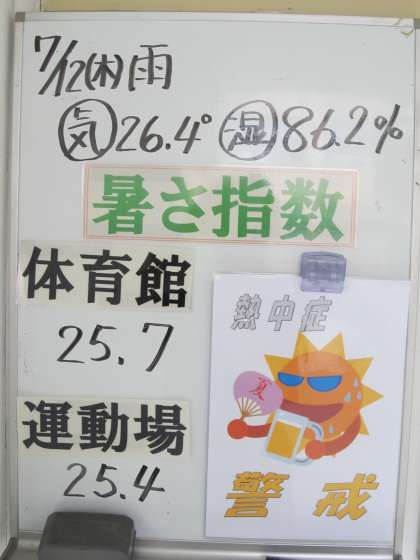 7/12(木)雨
気26.4° 湿86.2%
暑さ指数
体育館
25.7
運動場
25.4
熱中症
夏
警戒